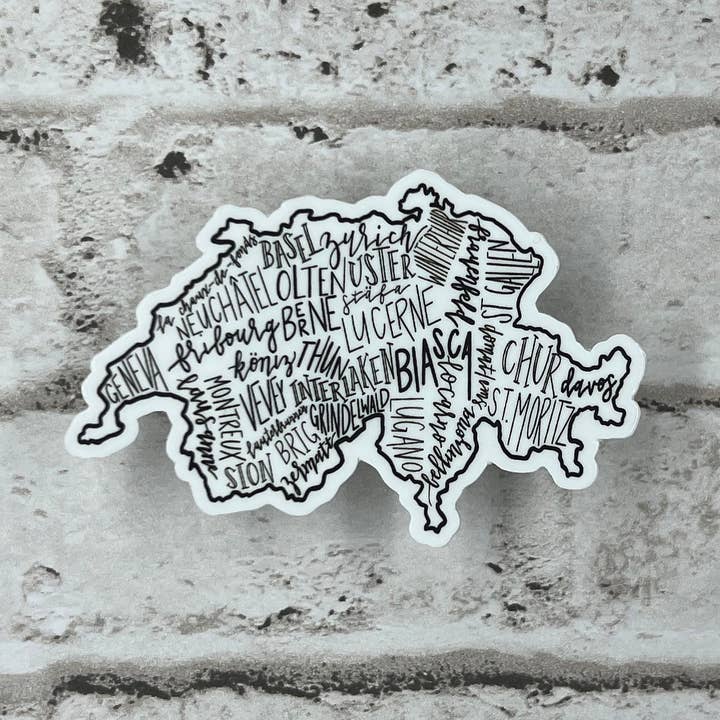 la chaux-de-fonds
BASEL
zurich
WINTERTHUR
frauenfeld
ST. GALLEN
NEUCHÂTEL
OLTEN
USTER
stäfa
fribourg
BERNE
LUCERNE
GENEVA
lausanne
köniz
THUN
INTERLAKEN
BIASCA
domat/ems
CHUR
davos
ST. MORITZ
MONTREUX
VEVEY
lauterbrunnen
GRINDELWALD
LUGANO
bellinzona
SION
BRIG
zermatt